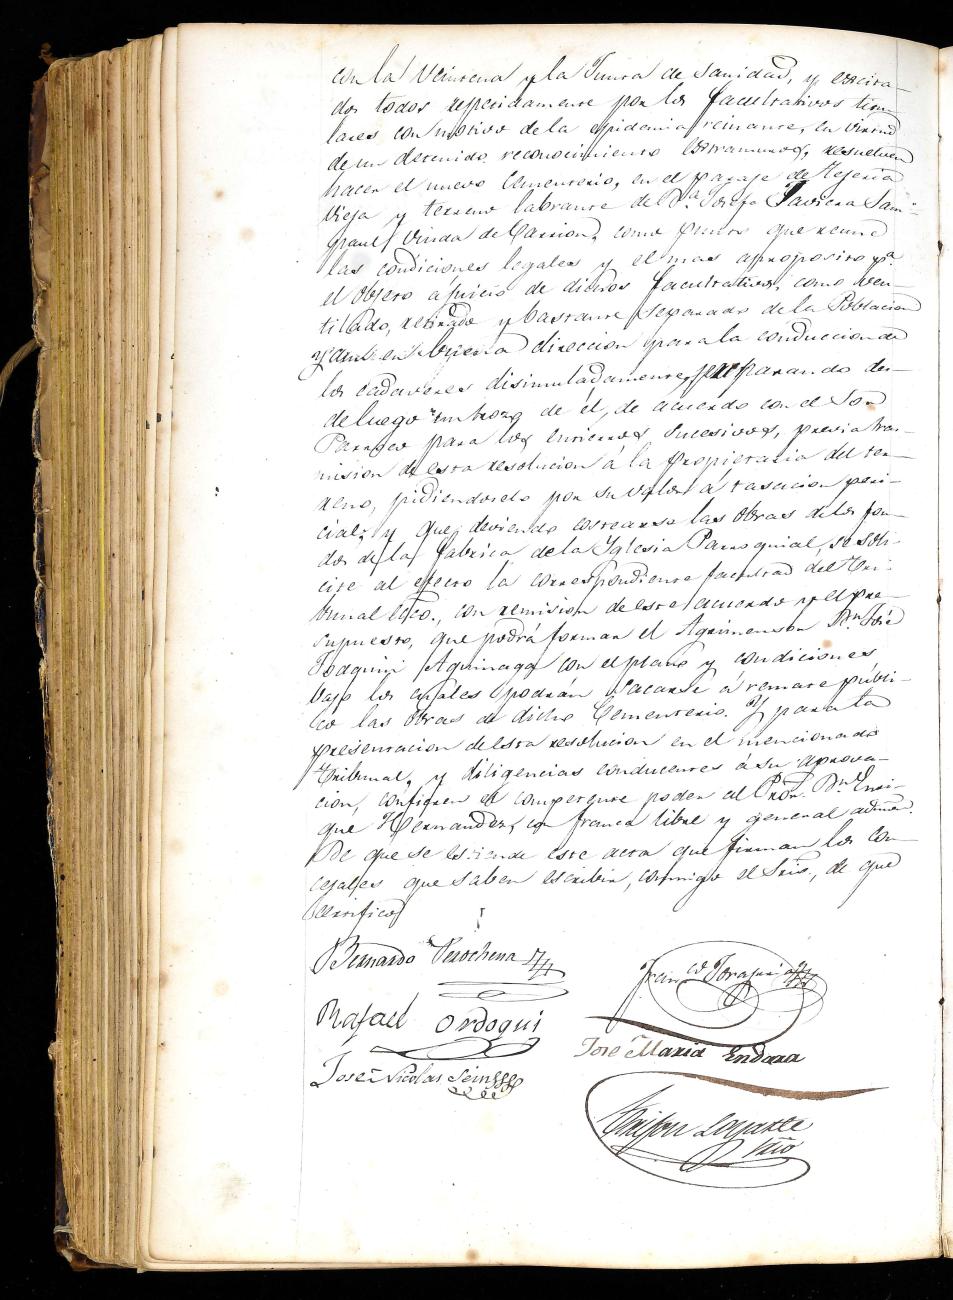 con la Veintena y la Junta de Sanidad, y escita-
dos todos repetidamente por los facultativos titu-
lares con motivo de la epidemia reinante, en virtud
de un detenido reconocimiento estramuros, resuelven
hacer el nuevo Cementerio, en el parage de Tejeria
vieja y terreno labrante de Dª Josefa Javiera Sam-
paul viuda de Carrion, como punto que reune
las condiciones legales y el mas aproposito pª
el objeto a juicio de dichos facultativos, como ven-
tilado, retirado y bastante separado de la Poblacion
y aun en buena direccion para la conduccion de
los cadaveres disimuladamente, preparando des-
de luego un trozo de el, de acuerdo con el Sor
Parroco para los entierros sucesivos, previa tras-
mision de esta resolucion á la propietaria del ter-
reno, pidiendoselo por su valor á tasacion peri-
cial; y que deviendo costearse las obras de los fon-
dos de la fabrica de la Yglesia Parroquial, se soli-
cite al efecto la correspondiente facultad del Tri-
vunal Ecco., con remision de este acuerdo y el pre-
supuesto, que podrá formar el Agrimensor Dn José
Joaquin Aguinaga con el plano y condiciones
bajo los cuales podrán sacarse á remate públi-
co las obras de dicho Cementerio. Y para la
presentacion de esta resolucion en el mencionado
Tribunal, y diligencias conducentes á su aprova-
cion, confieren el competente poder al Pror. Dn Enri-
que Hernandez, con franca libre y general admon.
De que se estiende este acta que firman los con-
cejales que saben escribir, conmigo el Srio, de que
certifico
Bernardo Perochena
Franco
Rafael Ordoqui
José Maria Endara
José Nicolas
Loyarte
srio